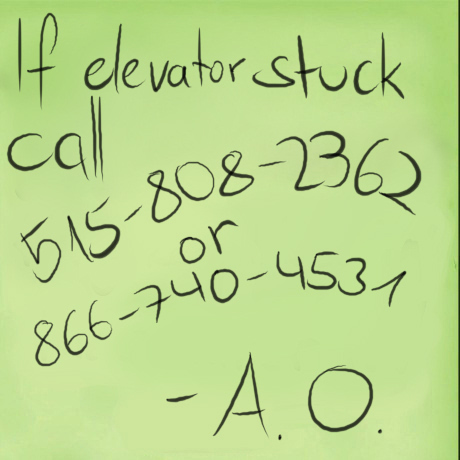 If elevator stuck
call
515-808-2362
or
866-740-4531
- A. O.